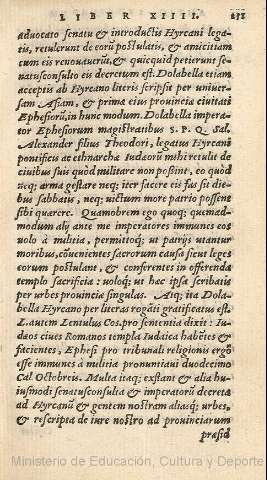 LIBER XIIII.
aduocato senatu & introductis Hyrcani lega
tis, retulerunt de eorũ postulatis, & amicitiam
cum eis renouauerũt, & quicquid petierunt se-
natusconsulto eis decretum est. Dolabella etiam
acceptis ab Hyrcano literis scripsit per uniuer-
sam Asiam, & primæ eius prouinciæ ciuitati
Ephesiorũ, in hunc modum. Dolabella impera-
tor Ephesiorum magistratibus S. P. Q. Sal.
Alexander filius Theodori, legatus Hyrcani
pontificis ac ethnarchæ Iudæorũ mihi retulit de
ciuibus suis quòd militare non possint, eo quòd
neq; arma gestare neq; iter facere eis fas sit die-
bus sabbatis, neq; uictum more patrio possent
sibi quærere. Quamobrem ego quoq; quemad-
modum alij ante me imperatores immunes eos
uolo à militia, permittoq; ut patrijs utantur
moribus, cõuenientes sacrorum causa sicut leges
eorum postulant, & conferentes in offerenda
templo sacrificia: uoloq; ut hæc ipsa scribatis
per urbes prouinciæ singulas. Atq; ita Dola-
bella Hyrcano per literas rogãti gratificatus est
L. autem Lentulus Cos. pro sententia dixit: Iu-
dæos ciues Romanos templa Iudaica habẽtes &
facientes, Ephesi pro tribunali religionis ergo
esse immunes à militia pronuntiaui duodecimo
Cal. Octobreis. Multa itaq; exstant & alia hu-
iusmodi senatusconsulta & imperatorũ decreta
ad Hyrcanũ & gentem nostram aliasq; urbes,
& rescripta de iure nostro ad prouinciarum
præsid
Ministerio de Educación, Cultura y Deporte